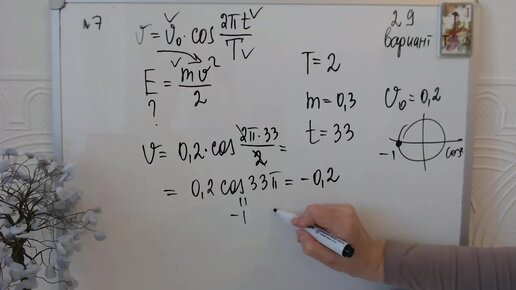 №7
v = v₀ · cos 2πt/T
29 вариант
E = mv²/2
?
T = 2
m = 0,3
t = 33
v₀ = 0,2
-1
cosx
v = 0,2 · cos 2π·33/2 =
= 0,2 cos 33π = -0,2
"
-1